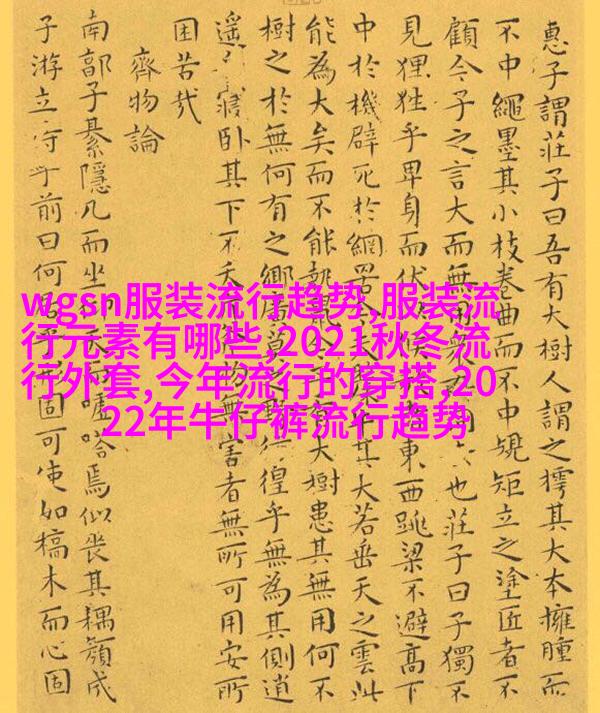 惠子謂莊子曰吾有大樹人謂之樗其大本擁腫而
不中繩墨其小枝卷曲而不中規矩立之塗匠者不
顧今子之言大而無用衆也莊子曰子獨不
見狸狌乎卑身而伏候東西跳梁不避高下
中於機辟死於網罟今夫其大若垂天之雲此
能為大矣而不能執鼠今子有大樹患其無用何不
樹之於無何有之鄉廣莫之野彷徨乎無為其側逍
遙寢卧其下不夭物無害者無所可用安所
困苦哉
齊物論
南郭子綦隱几而坐仰天而噓嗒焉似喪其耦顏成
子游立侍乎前曰何居乎形固可使如槁木而心固
wgsn服装流行趋势,服装流
行元素有哪些,2021秋冬流
行外套,今年流行的穿搭,20
22年牛仔裤流行趋势